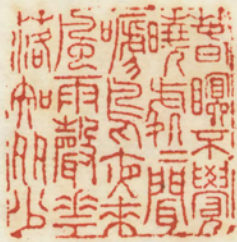 春瞑不覺
曉處々聞
嗁鳥夜來
風雨聲華
落知多少